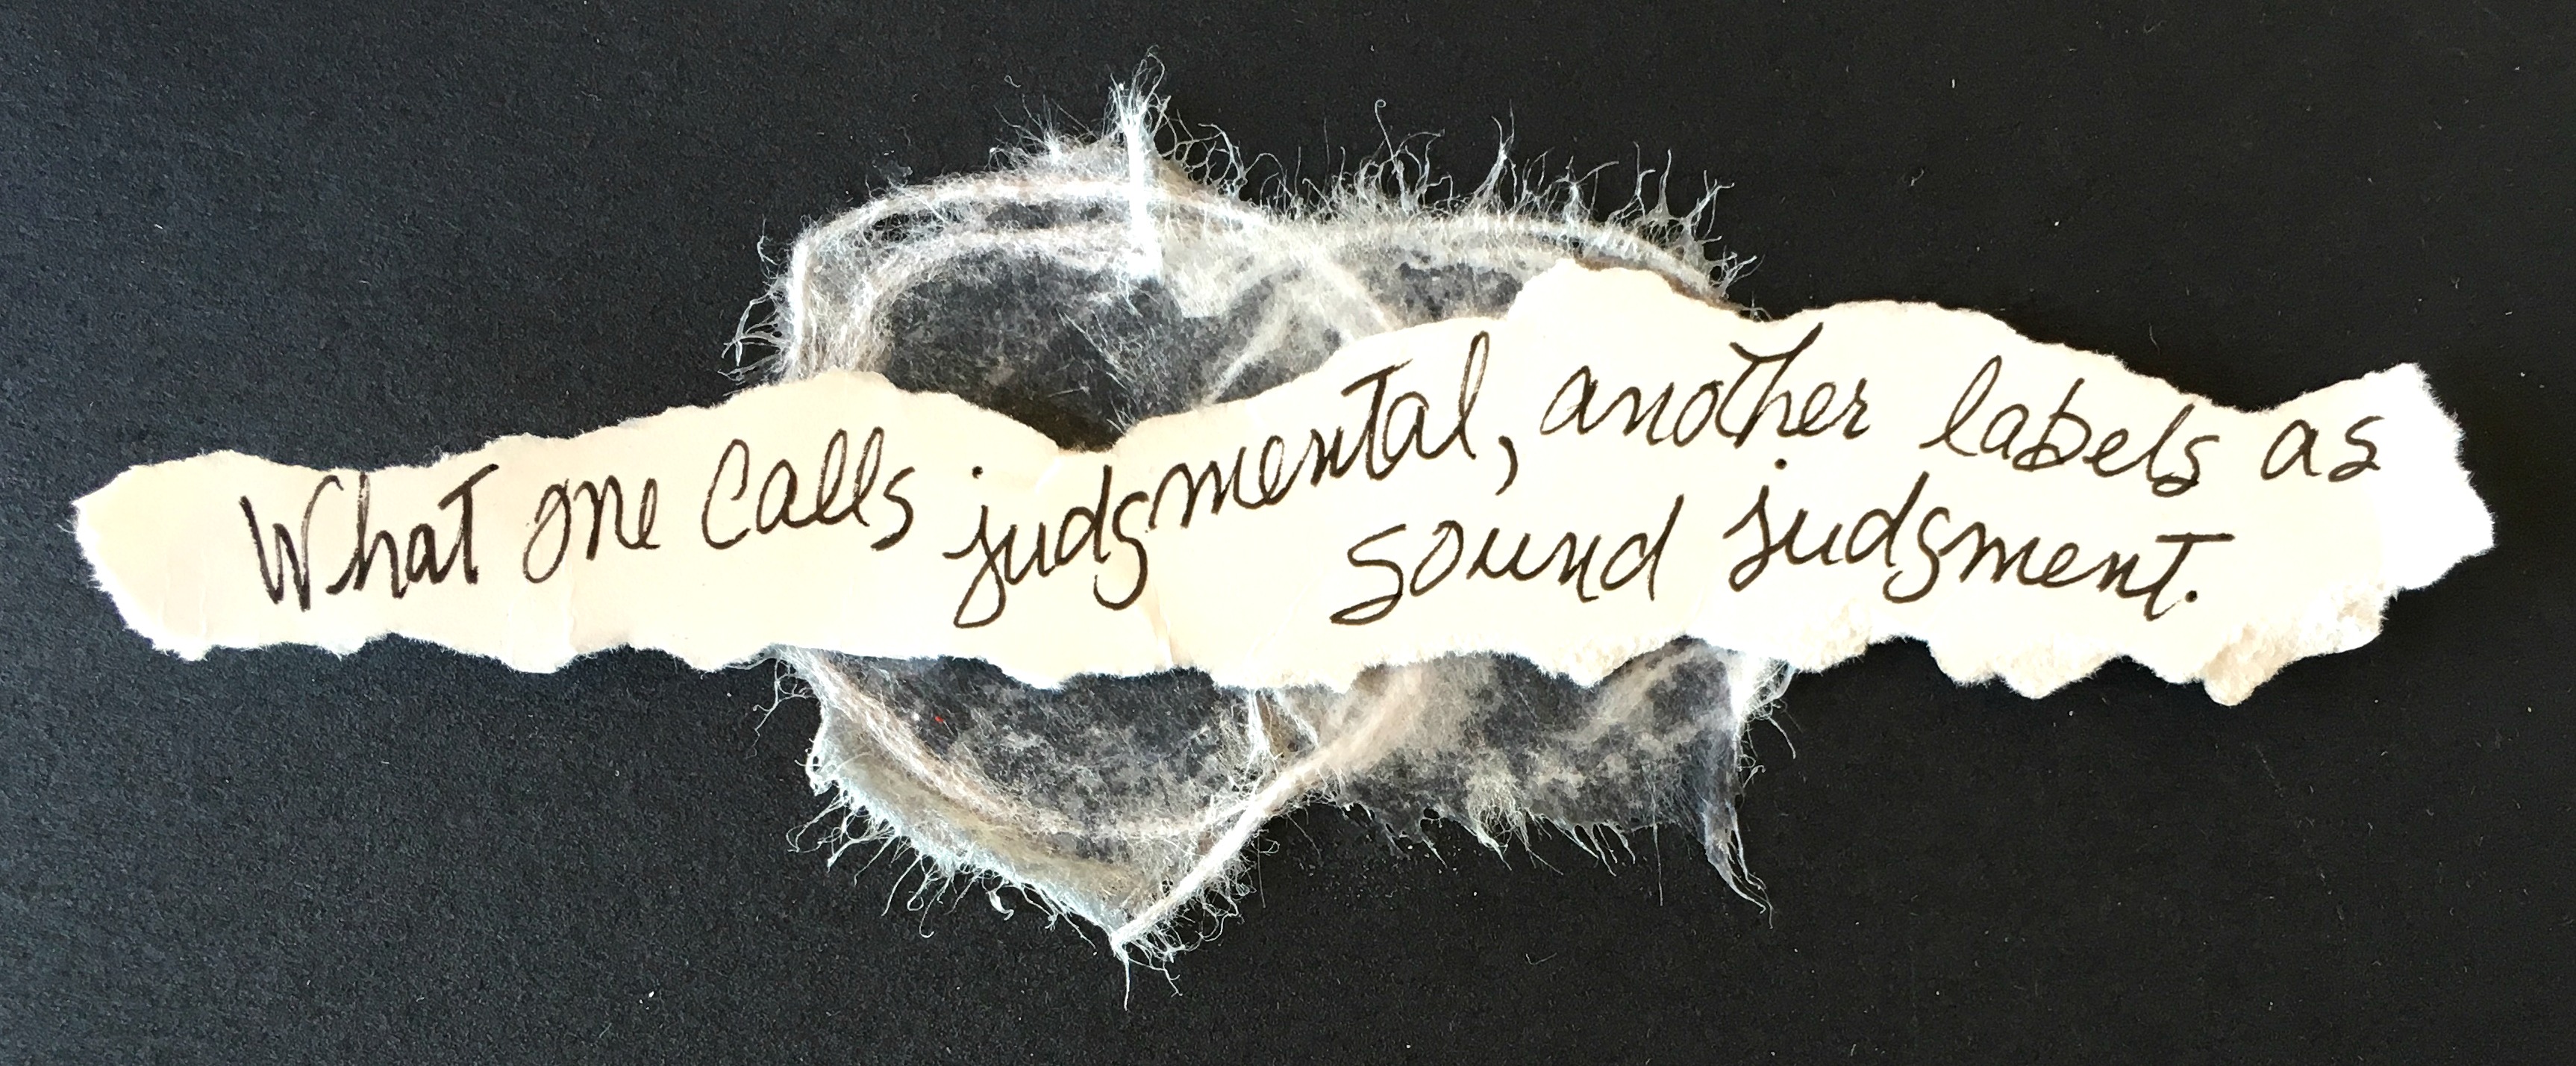 What one calls judgmental, another labels as
sound judgment.